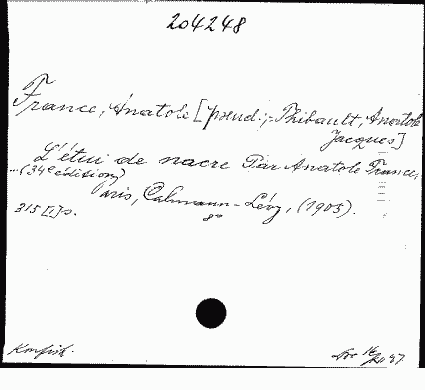 204248
France, Anatole [pseud.;-Thibault, Anatole
Jacques]
L'étui de nacre Par Anatole France.
...(34e édition)
Paris, Calmann-Lévy, (1905).
315 [1] s. 8°
Konfisk.